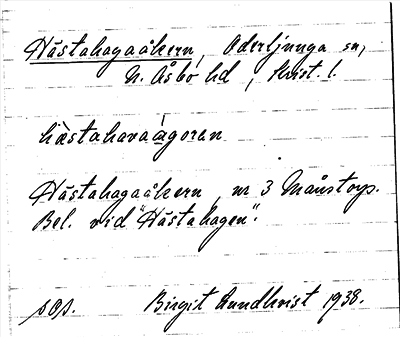 Hästahagaåkern, Oderljunga sn,
N. Åsbo hd, Krist. l.
hästahavaågoren
Hästahagaåkern, nr 3 Månstorp.
Bel. vid "Hästahagen".
sos. Birgit Lundkvist 1938.